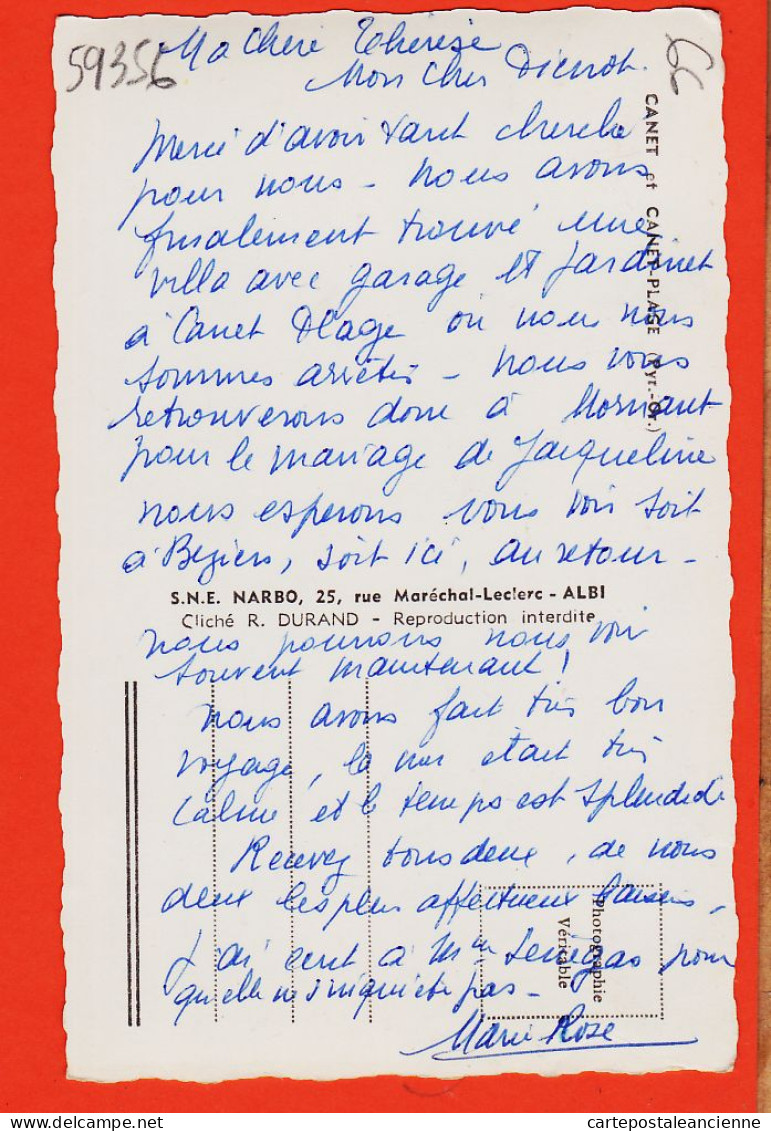 59356
66
Ma Chère Thérèse
Mon Cher Pierrot.
CANET et CANET-PLAGE (Pyr.-Or.)
Merci d'avoir tant cherché
pour nous - nous avons
finalement trouvé une
villa avec garage et jardinet
à Canet Plage où nous nous
sommes arrêtés - nous vous
retrouverons donc à Mornant
pour le mariage de Jacqueline
nous esperons vous voir soit
à Beziers, soit ici, au retour -
S.N.E. NARBO, 25, rue Maréchal-Leclerc - ALBI
Cliché R. DURAND - Reproduction interdite
nous pourrons nous voir
souvent maintenant !
nous avons fait très bon
voyage, la mer était très
calme et le temps est splendide
Recevez tous deux, de nous
deux les plus affectueux baisers,
J'ai écrit à Mme Senegas pour
qu'elle ne s'inquiète pas -
Photographie
Véritable
Marie Rose
cartepostaleancienne